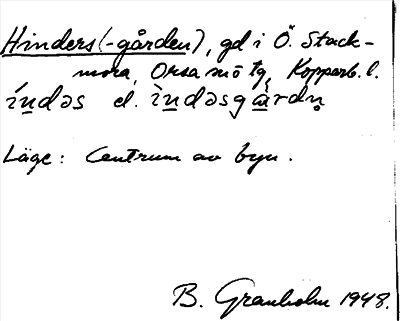 Hinders (-gården), gd i Ö. Stack-
mora, Orsa sn ö tg, Kopparb. l.
índəs el. ìndəsgàrdn̥
Läge: Centrum av byn.
B. Granholm 1948.